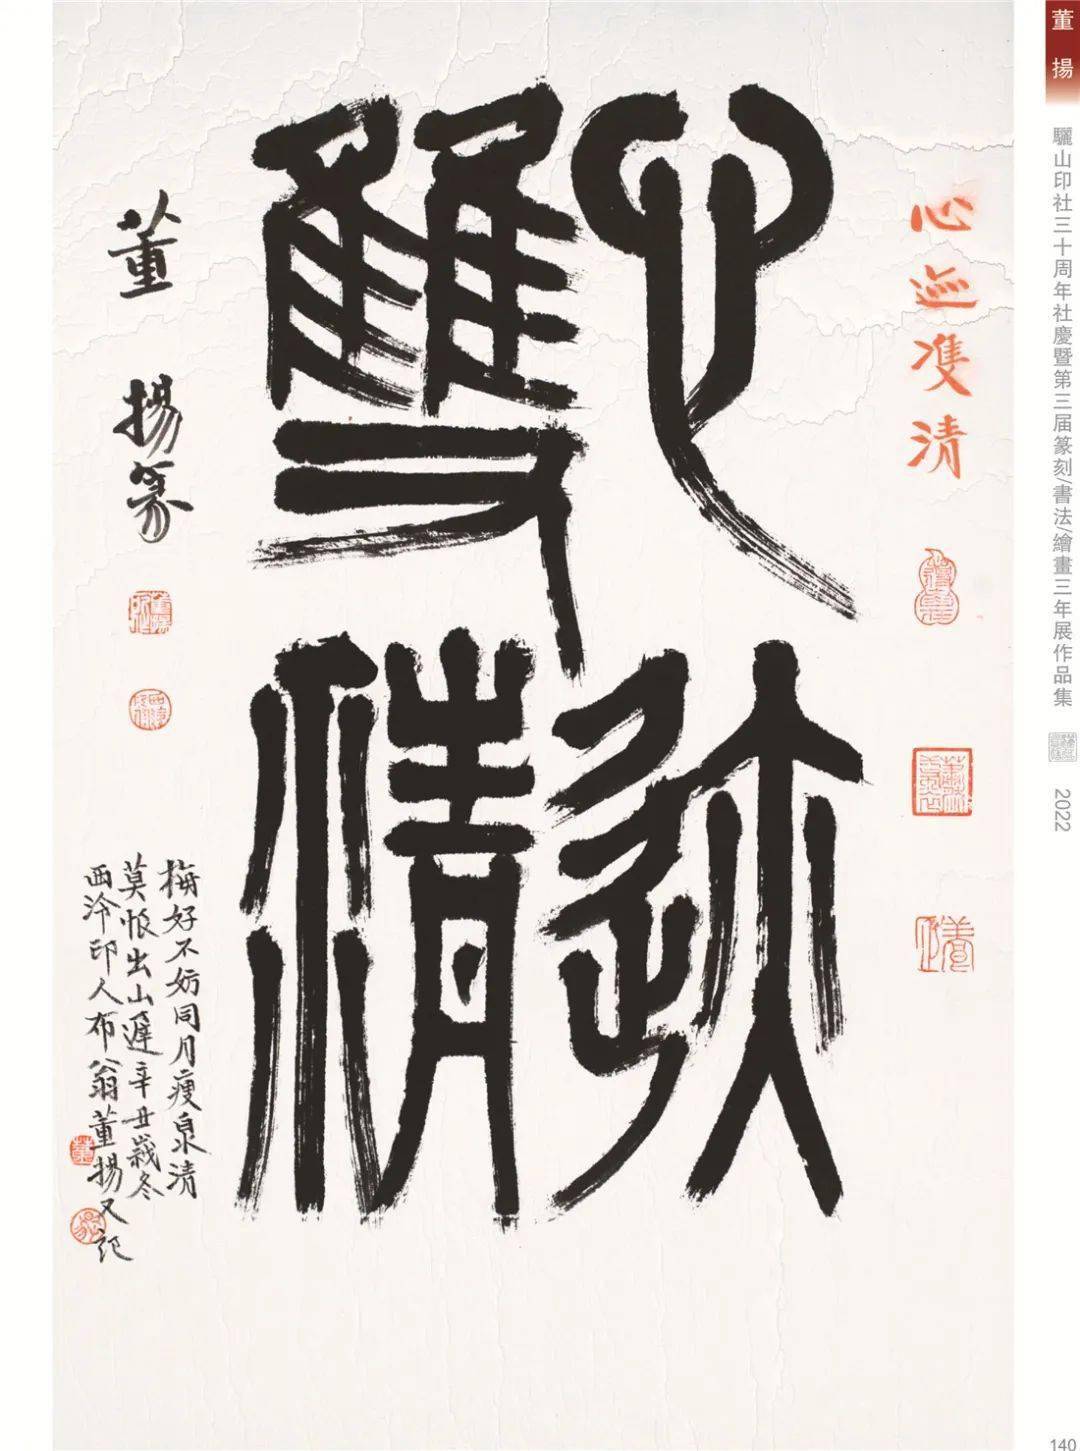 董揚
驪山印社三十周年社慶暨第三届篆刻/書法/繪畫三年展作品集
2022
心迹雙清
心迹
雙清
董揚篆
梅好不妨同月瘦泉清
莫恨出山遲辛丑歲冬
西泠印人布翁董揚又記
140